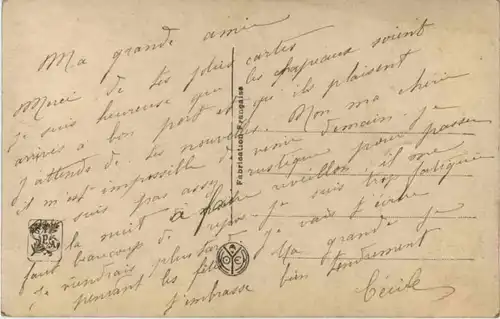 Ma grande amie
Merci de tes jolies cartes
je suis heureuse que les chapeaux soient
arrivés à bon port et qu'ils plaisent
J'attends de tes nouvelles. Mon ma chérie
il m'est impossible de venir demain je
suis pas assez rustique pour passer
la nuit à faire réveillon il me
faut beaucoup de repos je suis trop fatiguée
je viendrais plus tard je vais t'écrire
pendant les fêtes Ma grande je
t'embrasse bien tendrement
Cécile
Fabrication Française